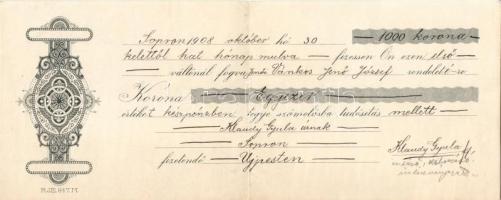 Sopron 1908 október hó 30 — 1000 korona
kelettől hat hónap mulva — fizessen Ön ezen első
váltónál fogva Jenő József rendeletére
Korona — Egyezer —
értéket készpénzben tegye számadásba tudósítás mellett
Klaudy Gyula urnak
Sopron
fizetendő — Ujpesten
Klaudy Gyula